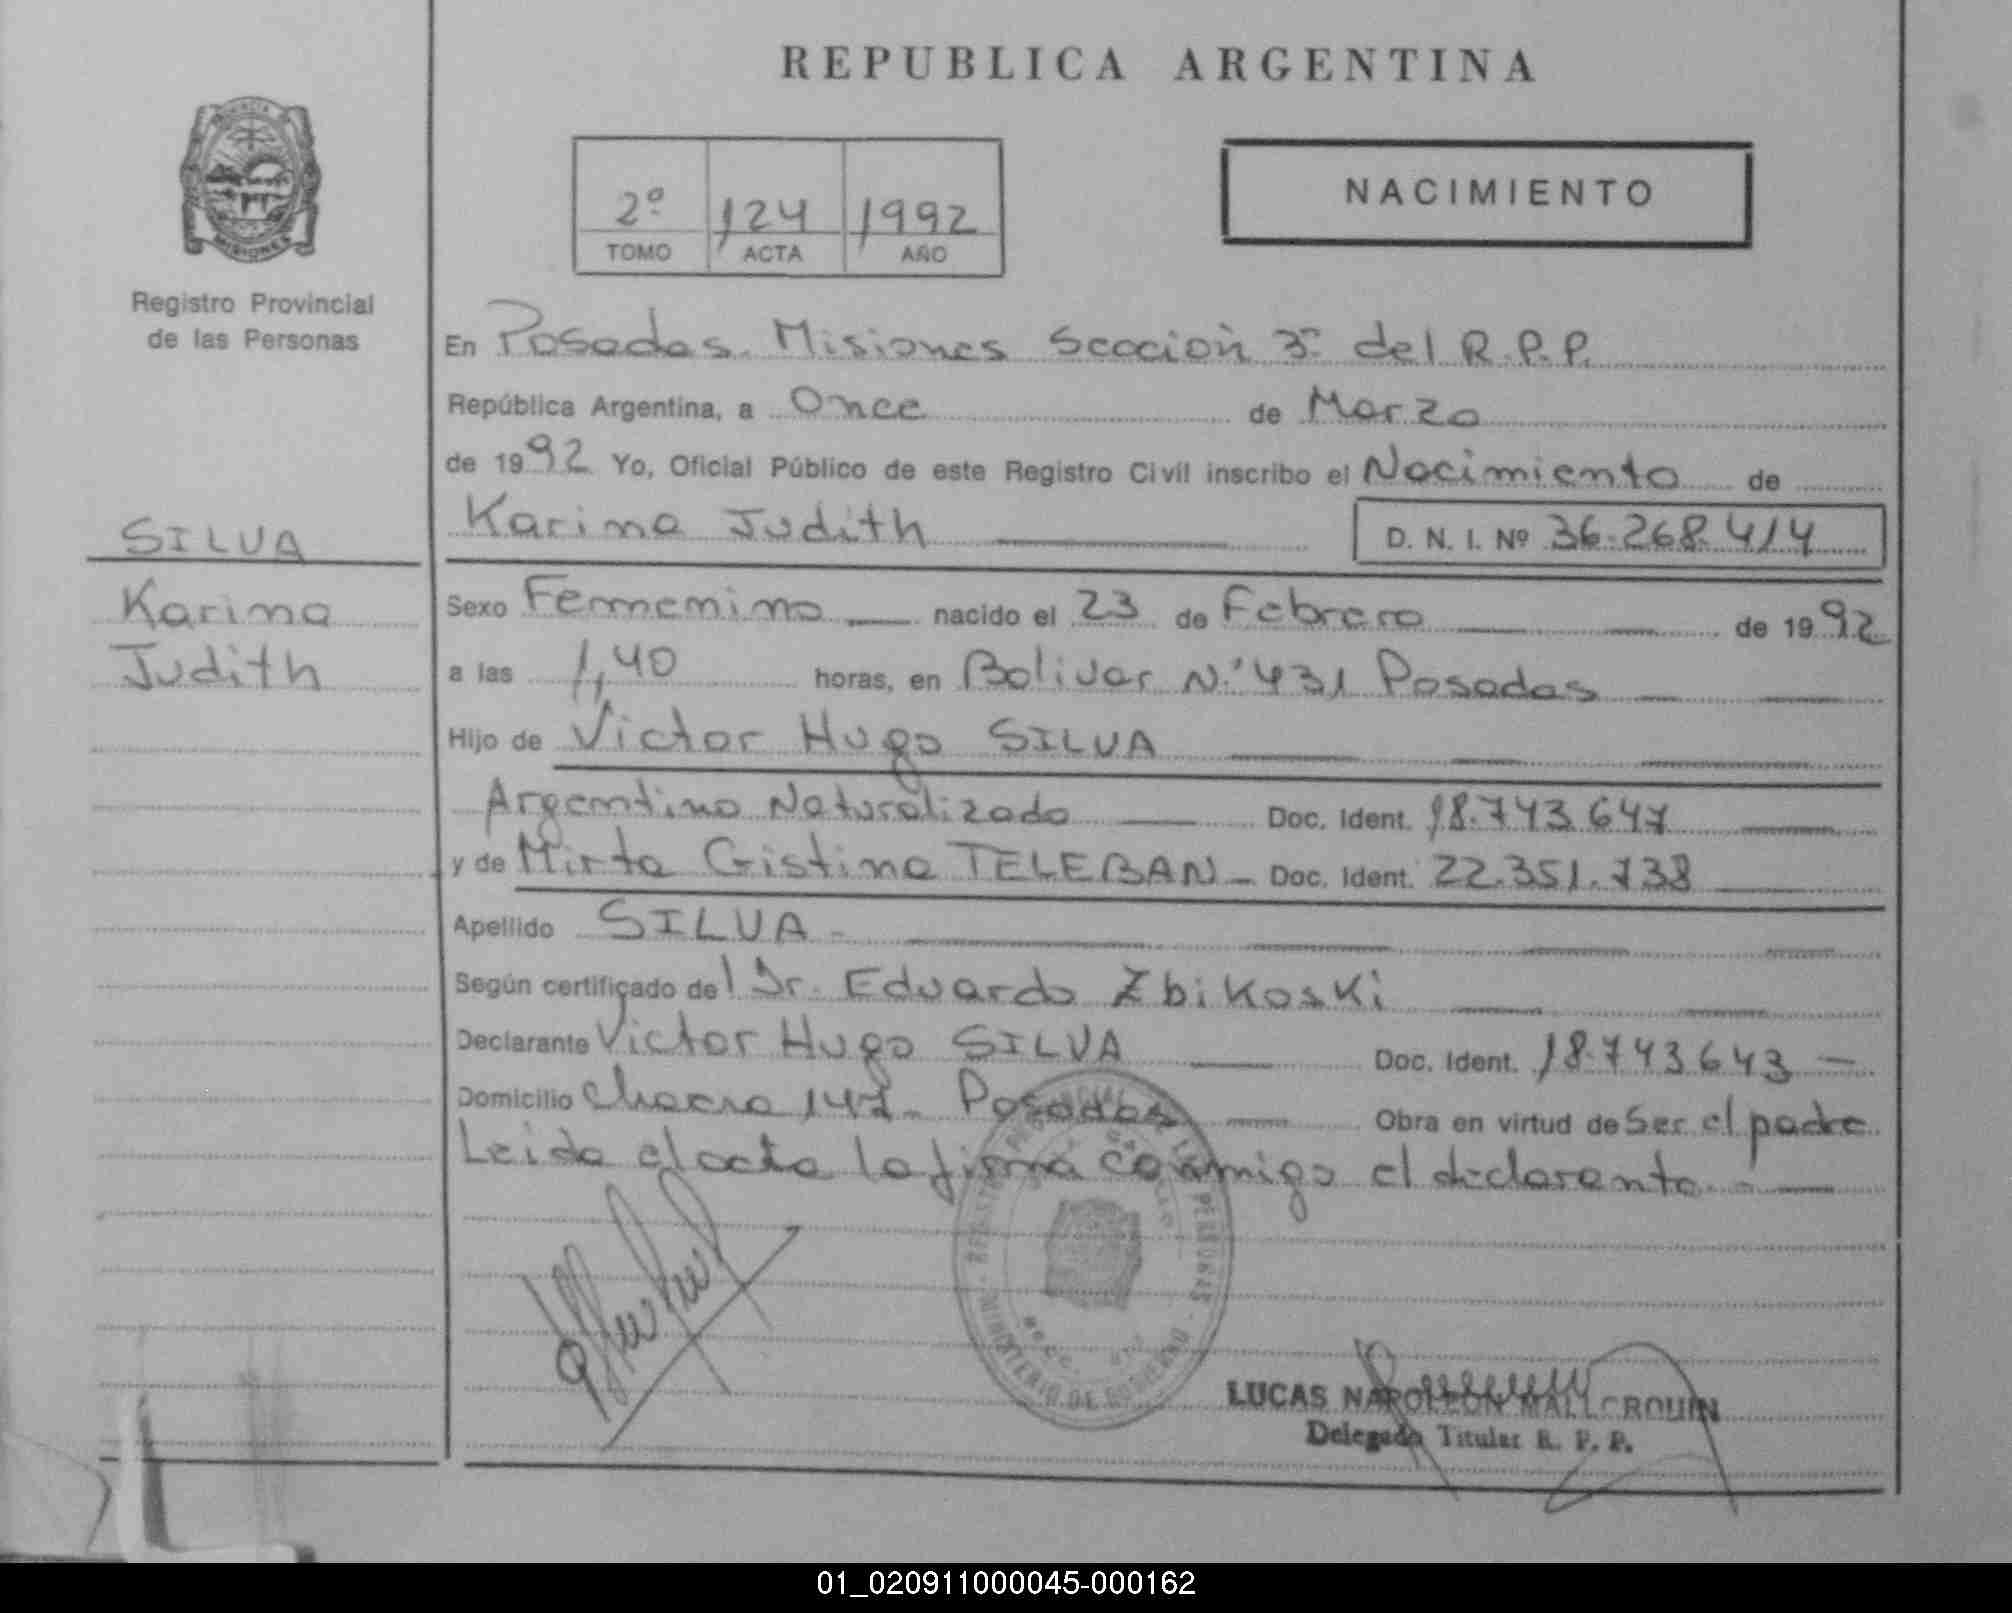 REPUBLICA ARGENTINA
2º 124 1992
TOMO ACTA AÑO
NACIMIENTO
MISIONES
Registro Provincial
de las Personas
SILVA
Karina
Judith
En Posadas. Misiones Seccion 3ª del R.P.P.
República Argentina, a Once de Marzo
de 1992 Yo, Oficial Público de este Registro Civil inscribo el Nacimiento de
Karina Judith D. N. I. Nº 36.268.414
Sexo Femenino nacido el 23 de Febrero de 1992
a las 1,40 horas, en Bolivar N.º 431 Posadas
Hijo de Victor Hugo SILVA
Argentino Naturalizado Doc. Ident. 18.743.647
y de Mirta Cristina TELEBAN Doc. Ident. 22.351.738
Apellido SILVA
Según certificado del Dr. Eduardo Zbikoski
Declarante Victor Hugo SILVA Doc. Ident. 18.743643
Domicilio Chacra 147 - Posadas Obra en virtud de Ser el padre
Leida el acta la firma conmigo el declarante
REGISTRO PROVINCIAL DE LAS PERSONAS
MINISTERIO DE GOBIERNO
LUCAS NAPOLEON
Delegado Titular R. P. P.
01_020911000045-000162